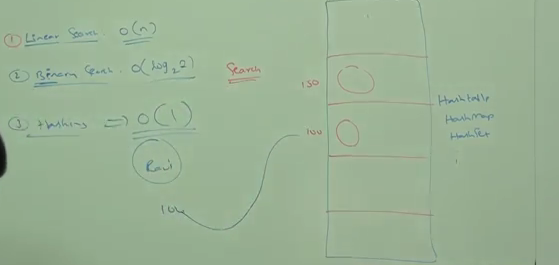 ① Linear Search. O(n)
② Binary Search. O(log₂2)
Search
③ Hashing ⇒ O(1)
Ravi
100
150
100
Hashtable
HashMap
HashSet